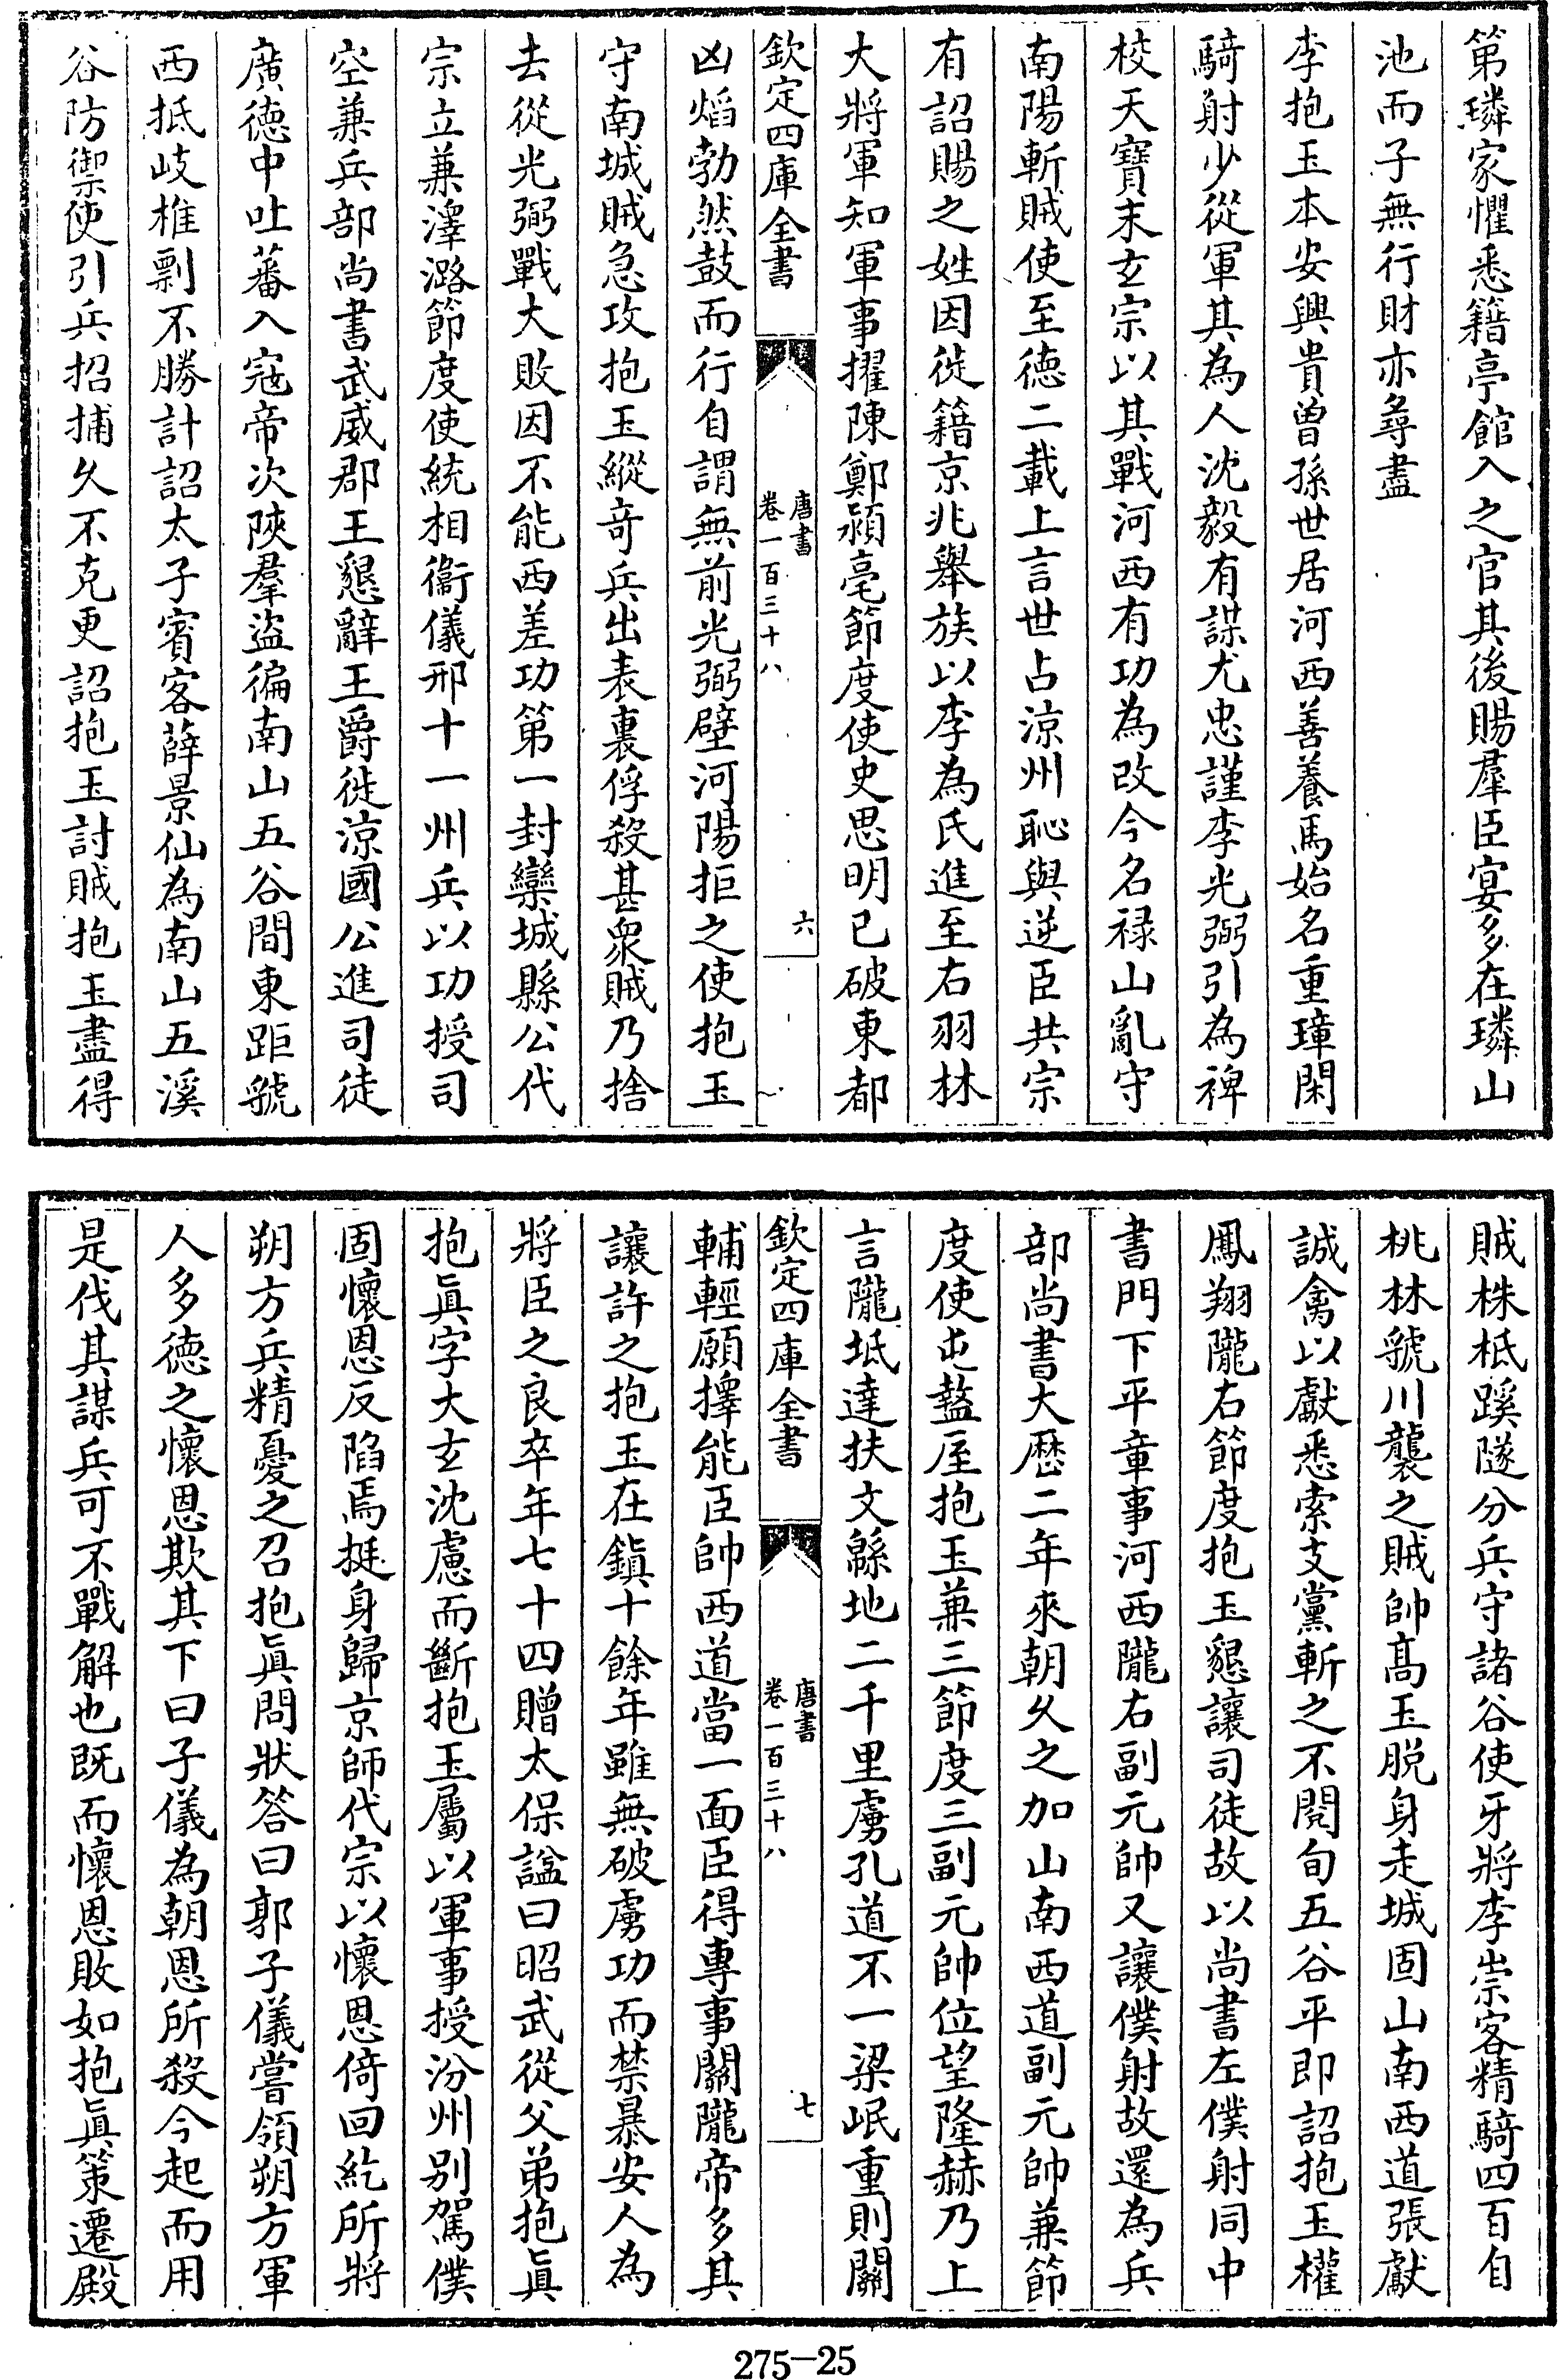 第璘家懼悉籍亭館入之官其後賜羣臣宴多在璘山
池而子無行財亦尋盡
李抱玉本安興貴曾孫世居河西善養馬始名重璋閑
騎射少從軍其為人沈毅有謀尤忠謹李光弼引為禆
校天寶末玄宗以其戰河西有功為改今名禄山亂守
南陽斬賊使至德二載上言世占涼州恥與逆臣共宗
有詔賜之姓因徙籍京兆舉族以李為氏進至右羽林
大將軍知軍事擢陳鄭潁亳節度使史思明已破東都
欽定四庫全書
唐書
卷一百三十八
六
凶熖勃然鼓而行自謂無前光弼壁河陽拒之使抱玉
守南城賊急攻抱玉縱竒兵出表裏俘殺甚衆賊乃捨
去從光弼戰大敗因不能西差功第一封欒城縣公代
宗立兼澤潞節度使統相衞儀邢十一州兵以功授司
空兼兵部尚書武威郡王懇辭王爵徙涼國公進司徒
廣德中吐蕃入寇帝次陝羣盜徧南山五谷間東距虢
西抵岐椎剽不勝計詔太子賓客薛景仙為南山五溪
谷防禦使引兵招捕久不克更詔抱玉討賊抱玉盡得
賊株柢蹊隧分兵守諸谷使牙將李崇客精騎四百自
桃林虢川襲之賊帥髙玉脱身走城固山南西道張獻
誠禽以獻悉索支黨斬之不閱旬五谷平即詔抱玉權
鳳翔隴右節度抱玉懇讓司徒故以尚書左僕射同中
書門下平章事河西隴右副元帥又讓僕射故還為兵
部尚書大厯二年來朝久之加山南西道副元帥兼節
度使屯盩厔抱玉兼三節度三副元帥位望隆赫乃上
言隴坻達扶文緜地二千里虜孔道不一梁岷重則關
欽定四庫全書
唐書
卷一百三十八
七
輔輕願擇能臣帥西道當一面臣得專事關隴帝多其
讓許之抱玉在鎮十餘年雖無破虜功而禁暴安人為
將臣之良卒年七十四贈太保諡曰昭武從父弟抱眞
抱眞字大玄沈慮而斷抱玉屬以軍事授汾州别駕僕
固懷恩反陷焉挺身歸京師代宗以懷恩倚回紇所將
朔方兵精憂之召抱眞問狀答曰郭子儀嘗領朔方軍
人多德之懷恩欺其下曰子儀為朝恩所殺今起而用
是伐其謀兵可不戰解也既而懷恩敗如抱眞策遷殿
275-25